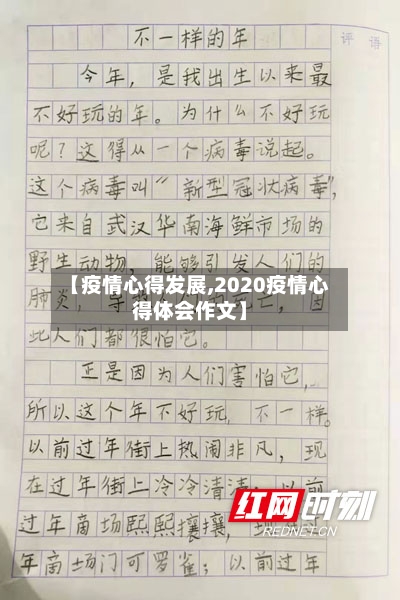 不一样的年
评语
今年，是我出生以来最
不好玩的年。为什么不好玩
呢？这得从一个病毒说起。
这个病毒叫“新型冠状病毒”，
它来自武汉华南海鲜市场的
野生动物，能够引发人们的
肺炎，
【疫情心得发展,2020疫情心
得体会作文】
亡，因
此人们都很怕它。
正是因为人们害怕它，
所以这个年不好玩，不一样。
以前过年街上热闹非凡，现
在过年街上冷冷清清；以前
过年商场熙熙攘攘，
红网时刻
REDNET.CN
年商场门可罗雀；以前过年